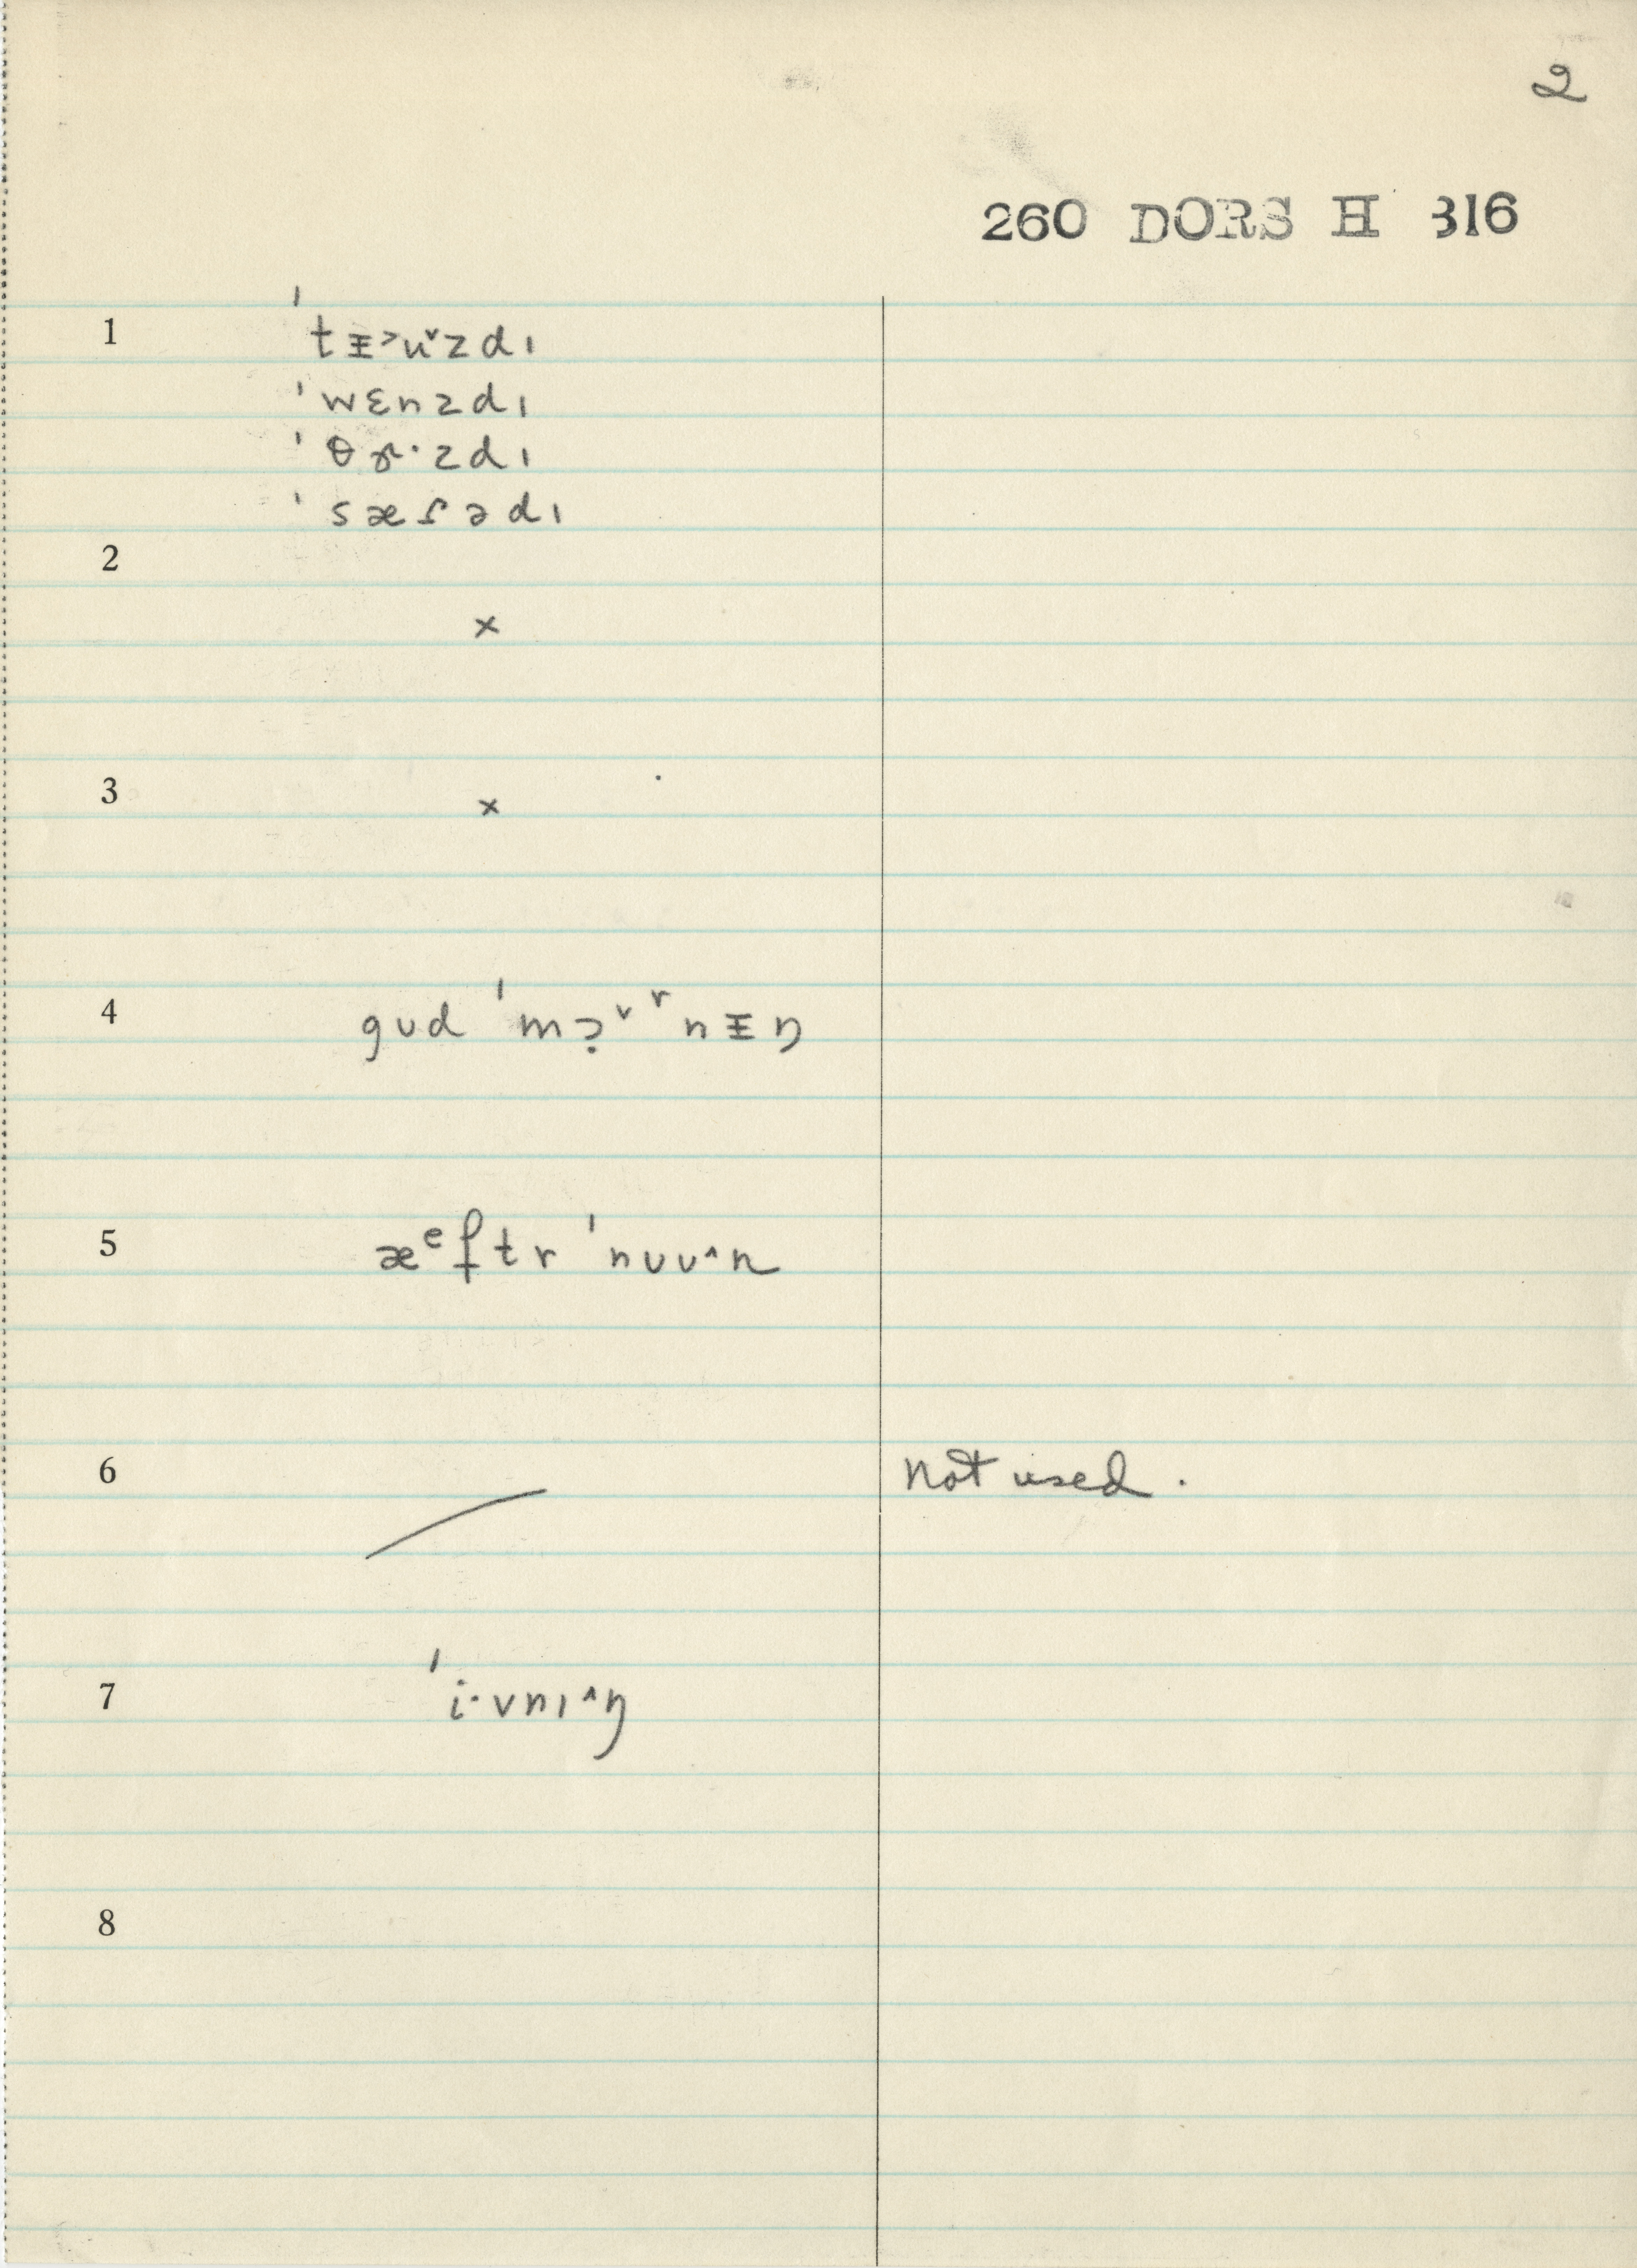 2
260 DORS H 316
1 ˈtᵻ˃u˅zdɪ
ˈwɛnzdɪ
ˈθɝ·zdɪ
ˈsæɾədɪ
2
×
3 ×
4 gʊd ˈmɔ̣˅ʳnᵻŋ
5 æᵉftr ˈnʊu˄n
6 not used.
7 ˈi·vnɪ˄ŋ
8